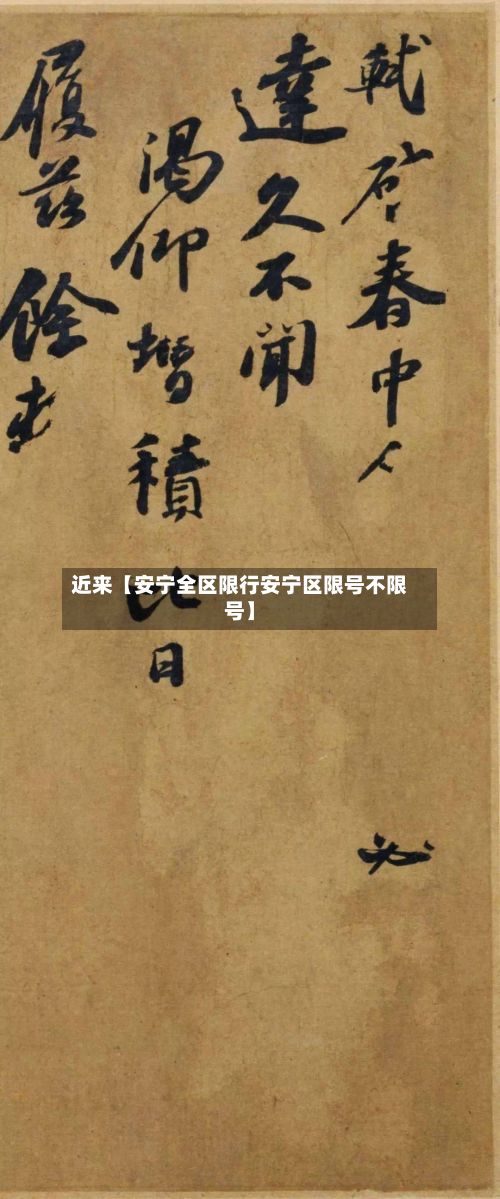 軾启春中人必
達久不聞
渴仰增積比日
履茲餘
近来【安宁全区限行安宁区限号不限
号】